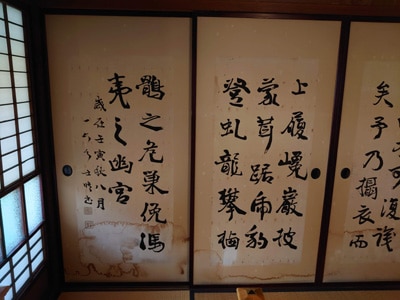 復識
矣予乃攝衣而
上履巉巖披
蒙茸踞虎豹
登虬龍攀栖
鶻之危巢俛馮
夷之幽宮
歲在壬寅秋八月